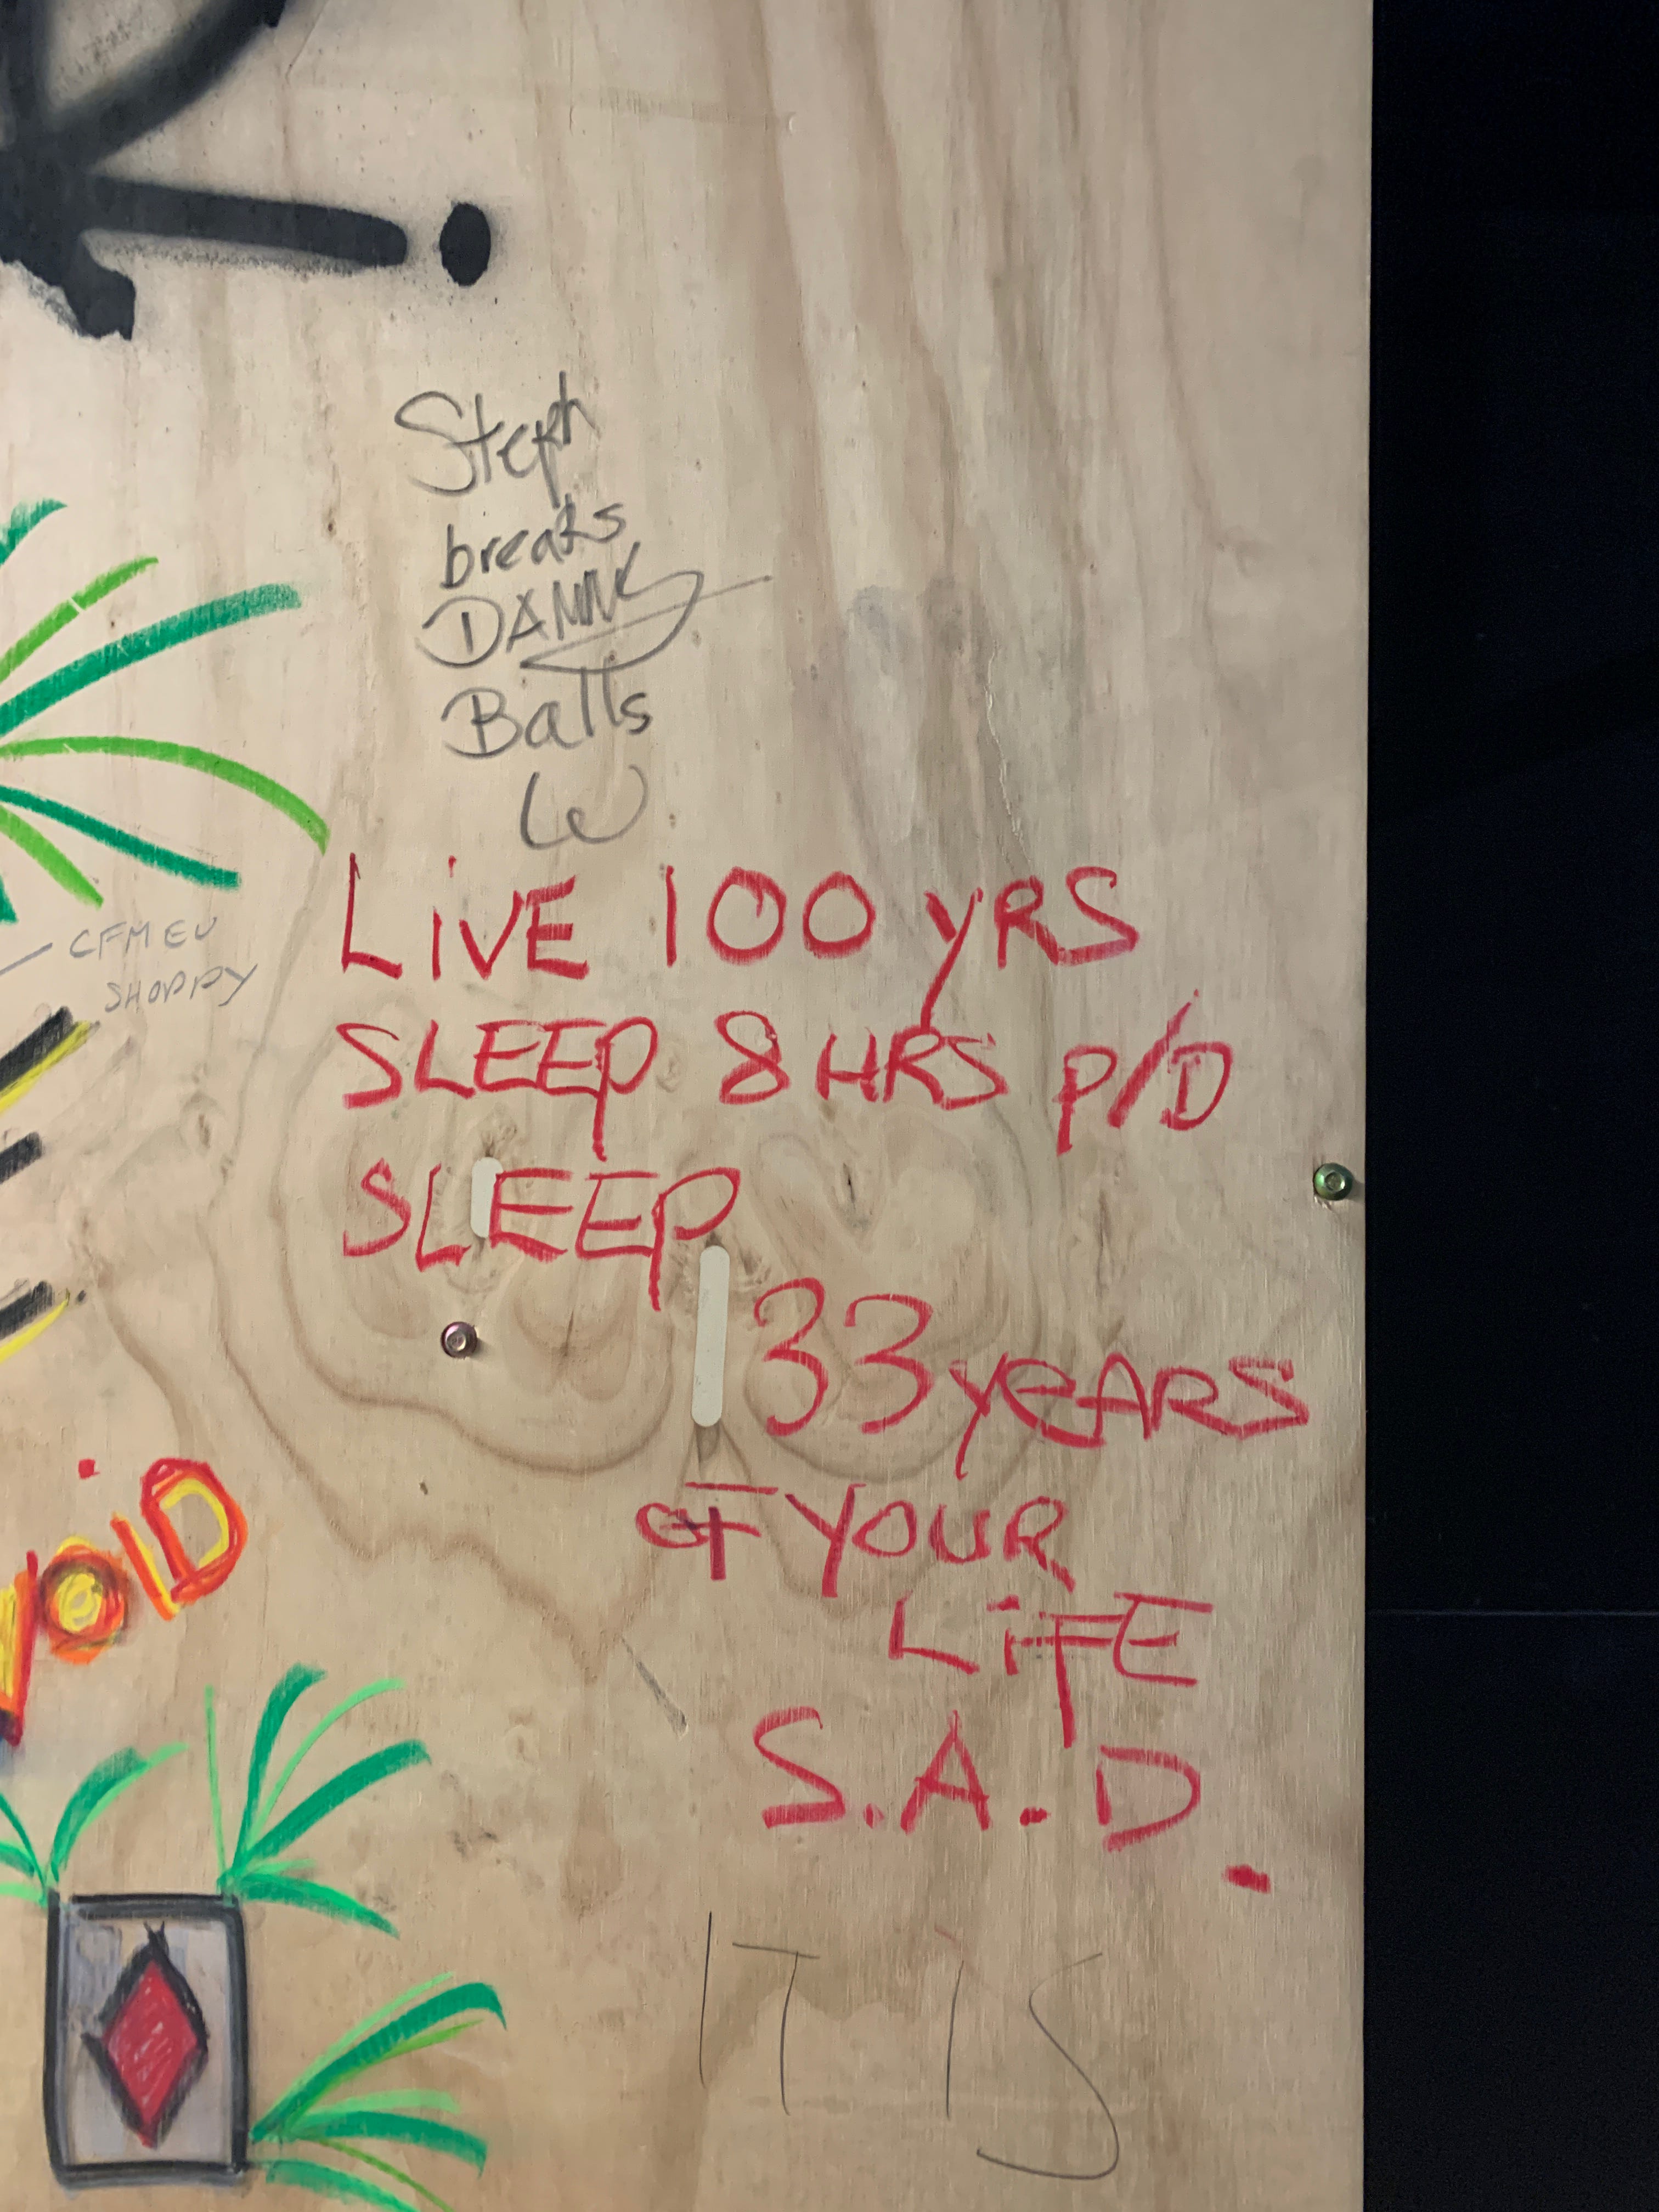 Steph
breaks
DANNYS
Balls
CFMEU
SHOPPY
LiVE 100 YRS
SLEEP 8 HRS P/D
SLEEP
33 YeARS
OF YOUR
LiFE
S.A.D.
IT IS